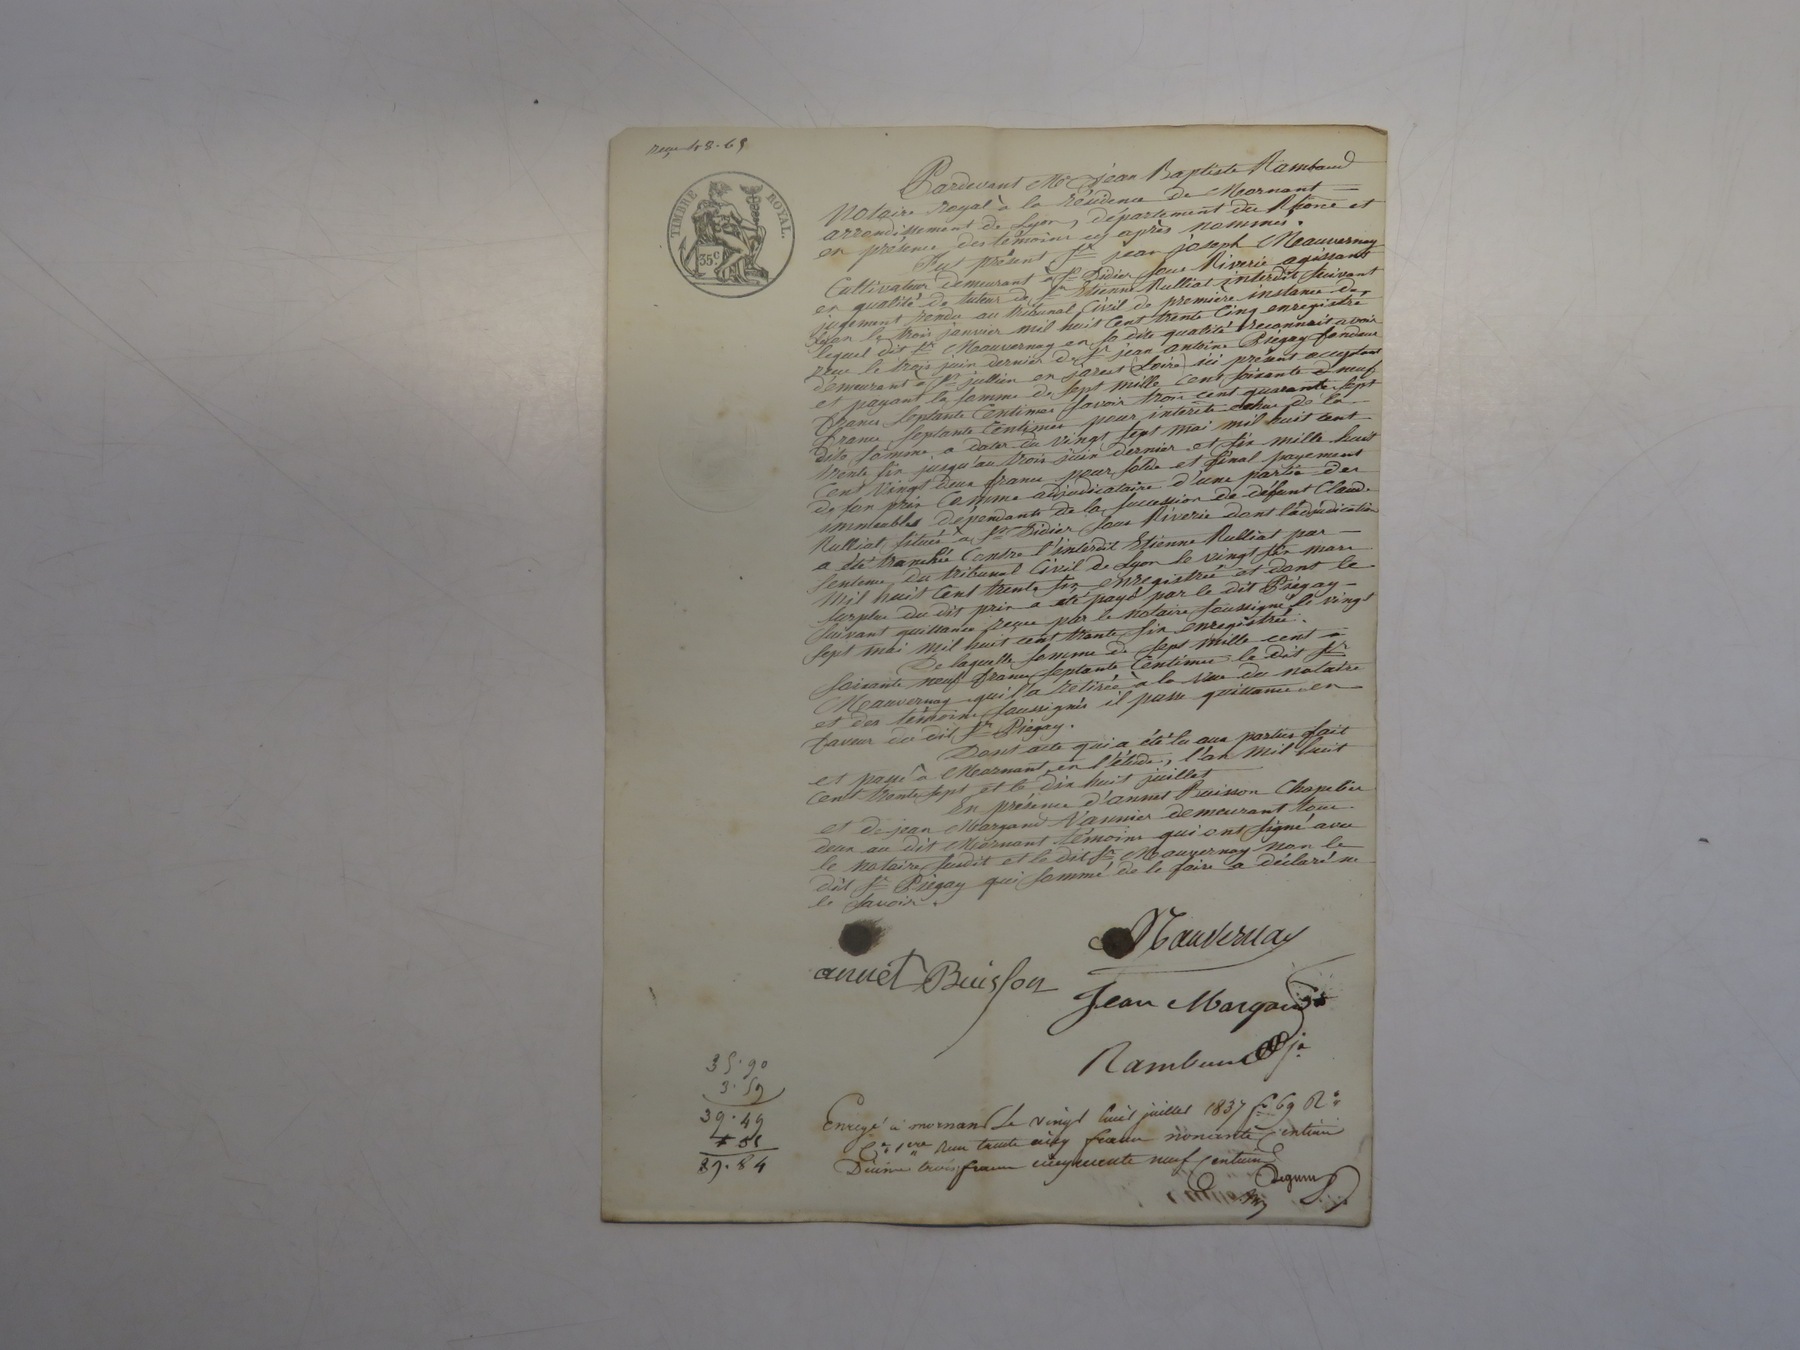 reçu 48.65
TIMBRE ROYAL.
35c
Pardevant Me Jean Baptiste Rambaud
Notaire royal à la résidence de Mornant
arrondissement de Lyon, département du Rhône et
en présence des témoins cy après nommés.
Fut présent Sr jean joseph Mauvernay
Cultivateur demeurant à St Didier sous Riverie agissant
en qualité de tuteur de Sr Etienne Rulliat interdit suivant
jugement rendu au tribunal Civil de première instance de
Lyon le trois janvier mil huit cent trente cinq enregistré
lequel dit Sr Mauvernay en sa dite qualité reconnait avoir
reçu le trois juin dernier de Sr jean antoine Piégay fondeur
demeurant à St jullien en jarest (Loire) ici présent acceptant
et payant la somme de sept mille cent soixante et neuf
francs septante centimes savoir trois cent quarante sept
francs septante centimes pour intérêts échus de la
dite somme, a dater du vingt sept mai mil huit cent
trente six jusqu'au trois juin dernier et six mille huit
cent vingt deux francs pour solde et final payement
de son prix comme adjudicataire d'une partie des
immeubles dépendants de la succession de défunt Claude
Rulliat, située à St Didier sous Riverie dont l'adjudication
a été tranchée contre l'interdit Etienne Rulliat par
sentence du tribunal Civil de Lyon le vingt six mars
mil huit cent trente six enregistrée et dont le
surplus du dit prix a été payé par le dit Piégay
suivant quittance reçue par le notaire soussigné le vingt
sept mai mil huit cent trente six enregistrée.
De laquelle somme de sept mille cent
soixante neuf francs septante centimes le dit Sr
Mauvernay qui l'a retirée à la vue du notaire
et des témoins soussignés il passe quittance en
faveur du dit Sr Piégay.
Dont acte qui a été lu aux parties fait
et passé à Mornant en l'étude, l'an mil huit
cent trente sept et le dix huit juillet
En présence d'annet Buisson Chapelier
et de jean Margand Vannier demeurant tous
deux au dit Mornant témoins qui ont signé avec
le notaire susdit et le dit Sr Mauvernay non le
dit Sr Piégay qui sommé de le faire a déclaré ne
le savoir.
Mauvernay
annet Buisson
Jean Margand
Rambaud
35.90
3.59
39.49
Enregé à mornant Le vingt huit juillet 1837 fo 69 Ro
Co 1ere Reçu trente cinq francs nonante centimes
Décime trois francs cinquante neuf centimes